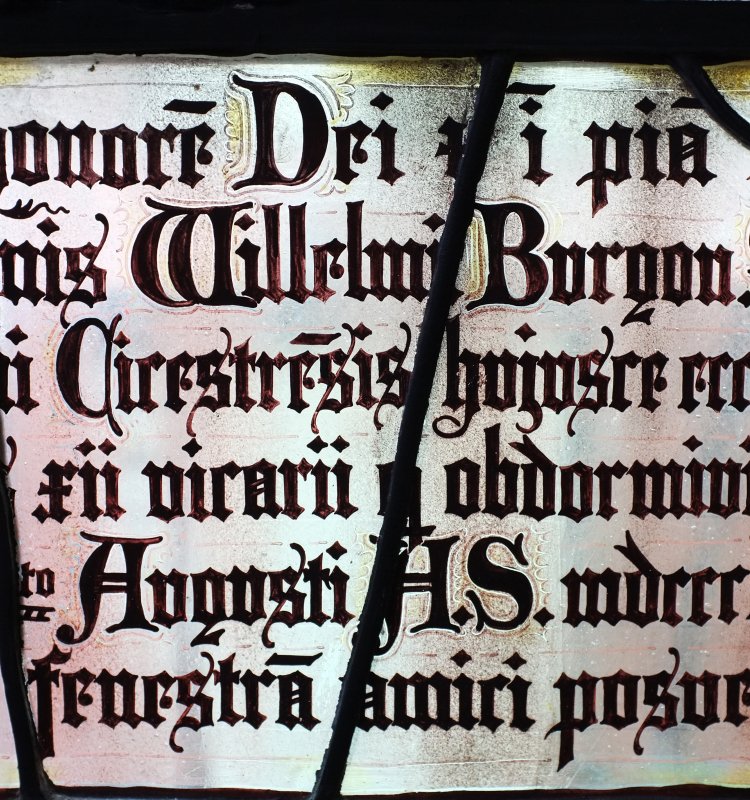 honorē Dei piā
Willelmi Burgon
Cicestrēsis hujusce
xii vicarii obdormivi
to Augusti A.S. mdccc
fenestrā amici posue